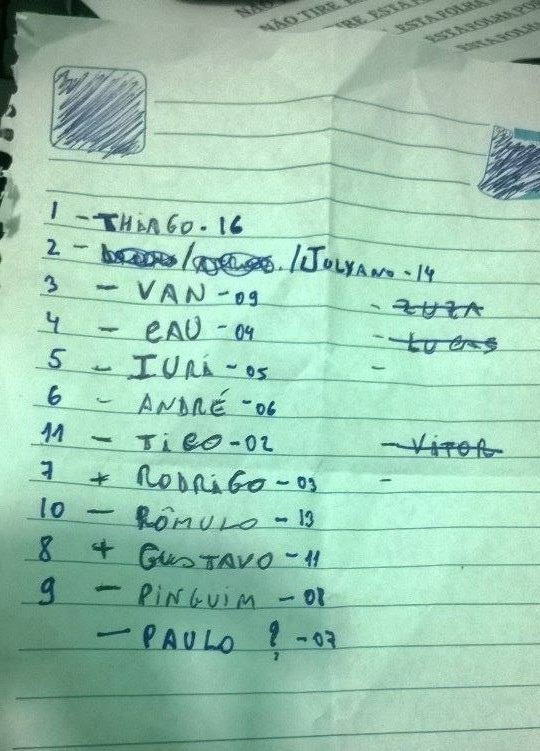 NÃO TIRE ESTA FOLHA
NÃO TIRE ESTA FOLHA
ESTA FOLHA
ESTA FOLHA
1 - THIAGO - 16
2 - / / JULYANO - 14
3 - VAN - 09 - ZUZA
4 - CAU - 04 - LUCAS
5 - IURI - 05 -
6 - ANDRÉ - 06
11 - TICO - 02 - VITOR
7 + RODRIGO - 03 -
10 - RÔMULO - 13
8 + GUSTAVO - 11
9 - PINGUIM - 08
- PAULO ? - 07